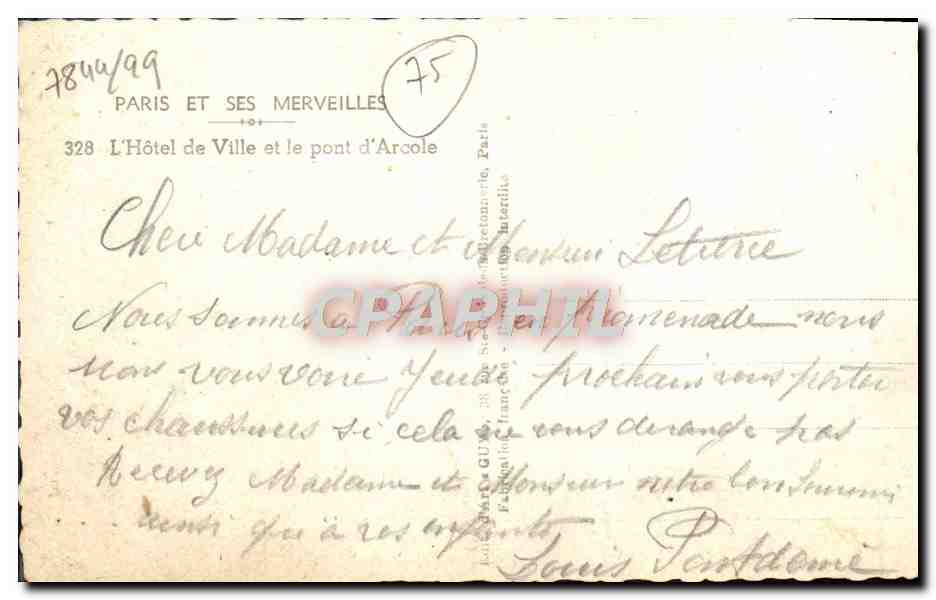 7844/99
75
PARIS ET SES MERVEILLES
328 L'Hôtel de Ville et le pont d'Arcole
Chere Madame et Monsieur
Nous sommes a Paris en promenade nous
irons vous voire Jeudi prochain vous porter
vos chaussures si cela ne vous derange pas
Recevez Madame et Monsieur notre bon Souvenir
ainsi qu'à vos enfants
Louis
CPAPHIL
Ste-Croix-de-la-Bretonnerie, Paris
Fabrication française - Reproduction interdite